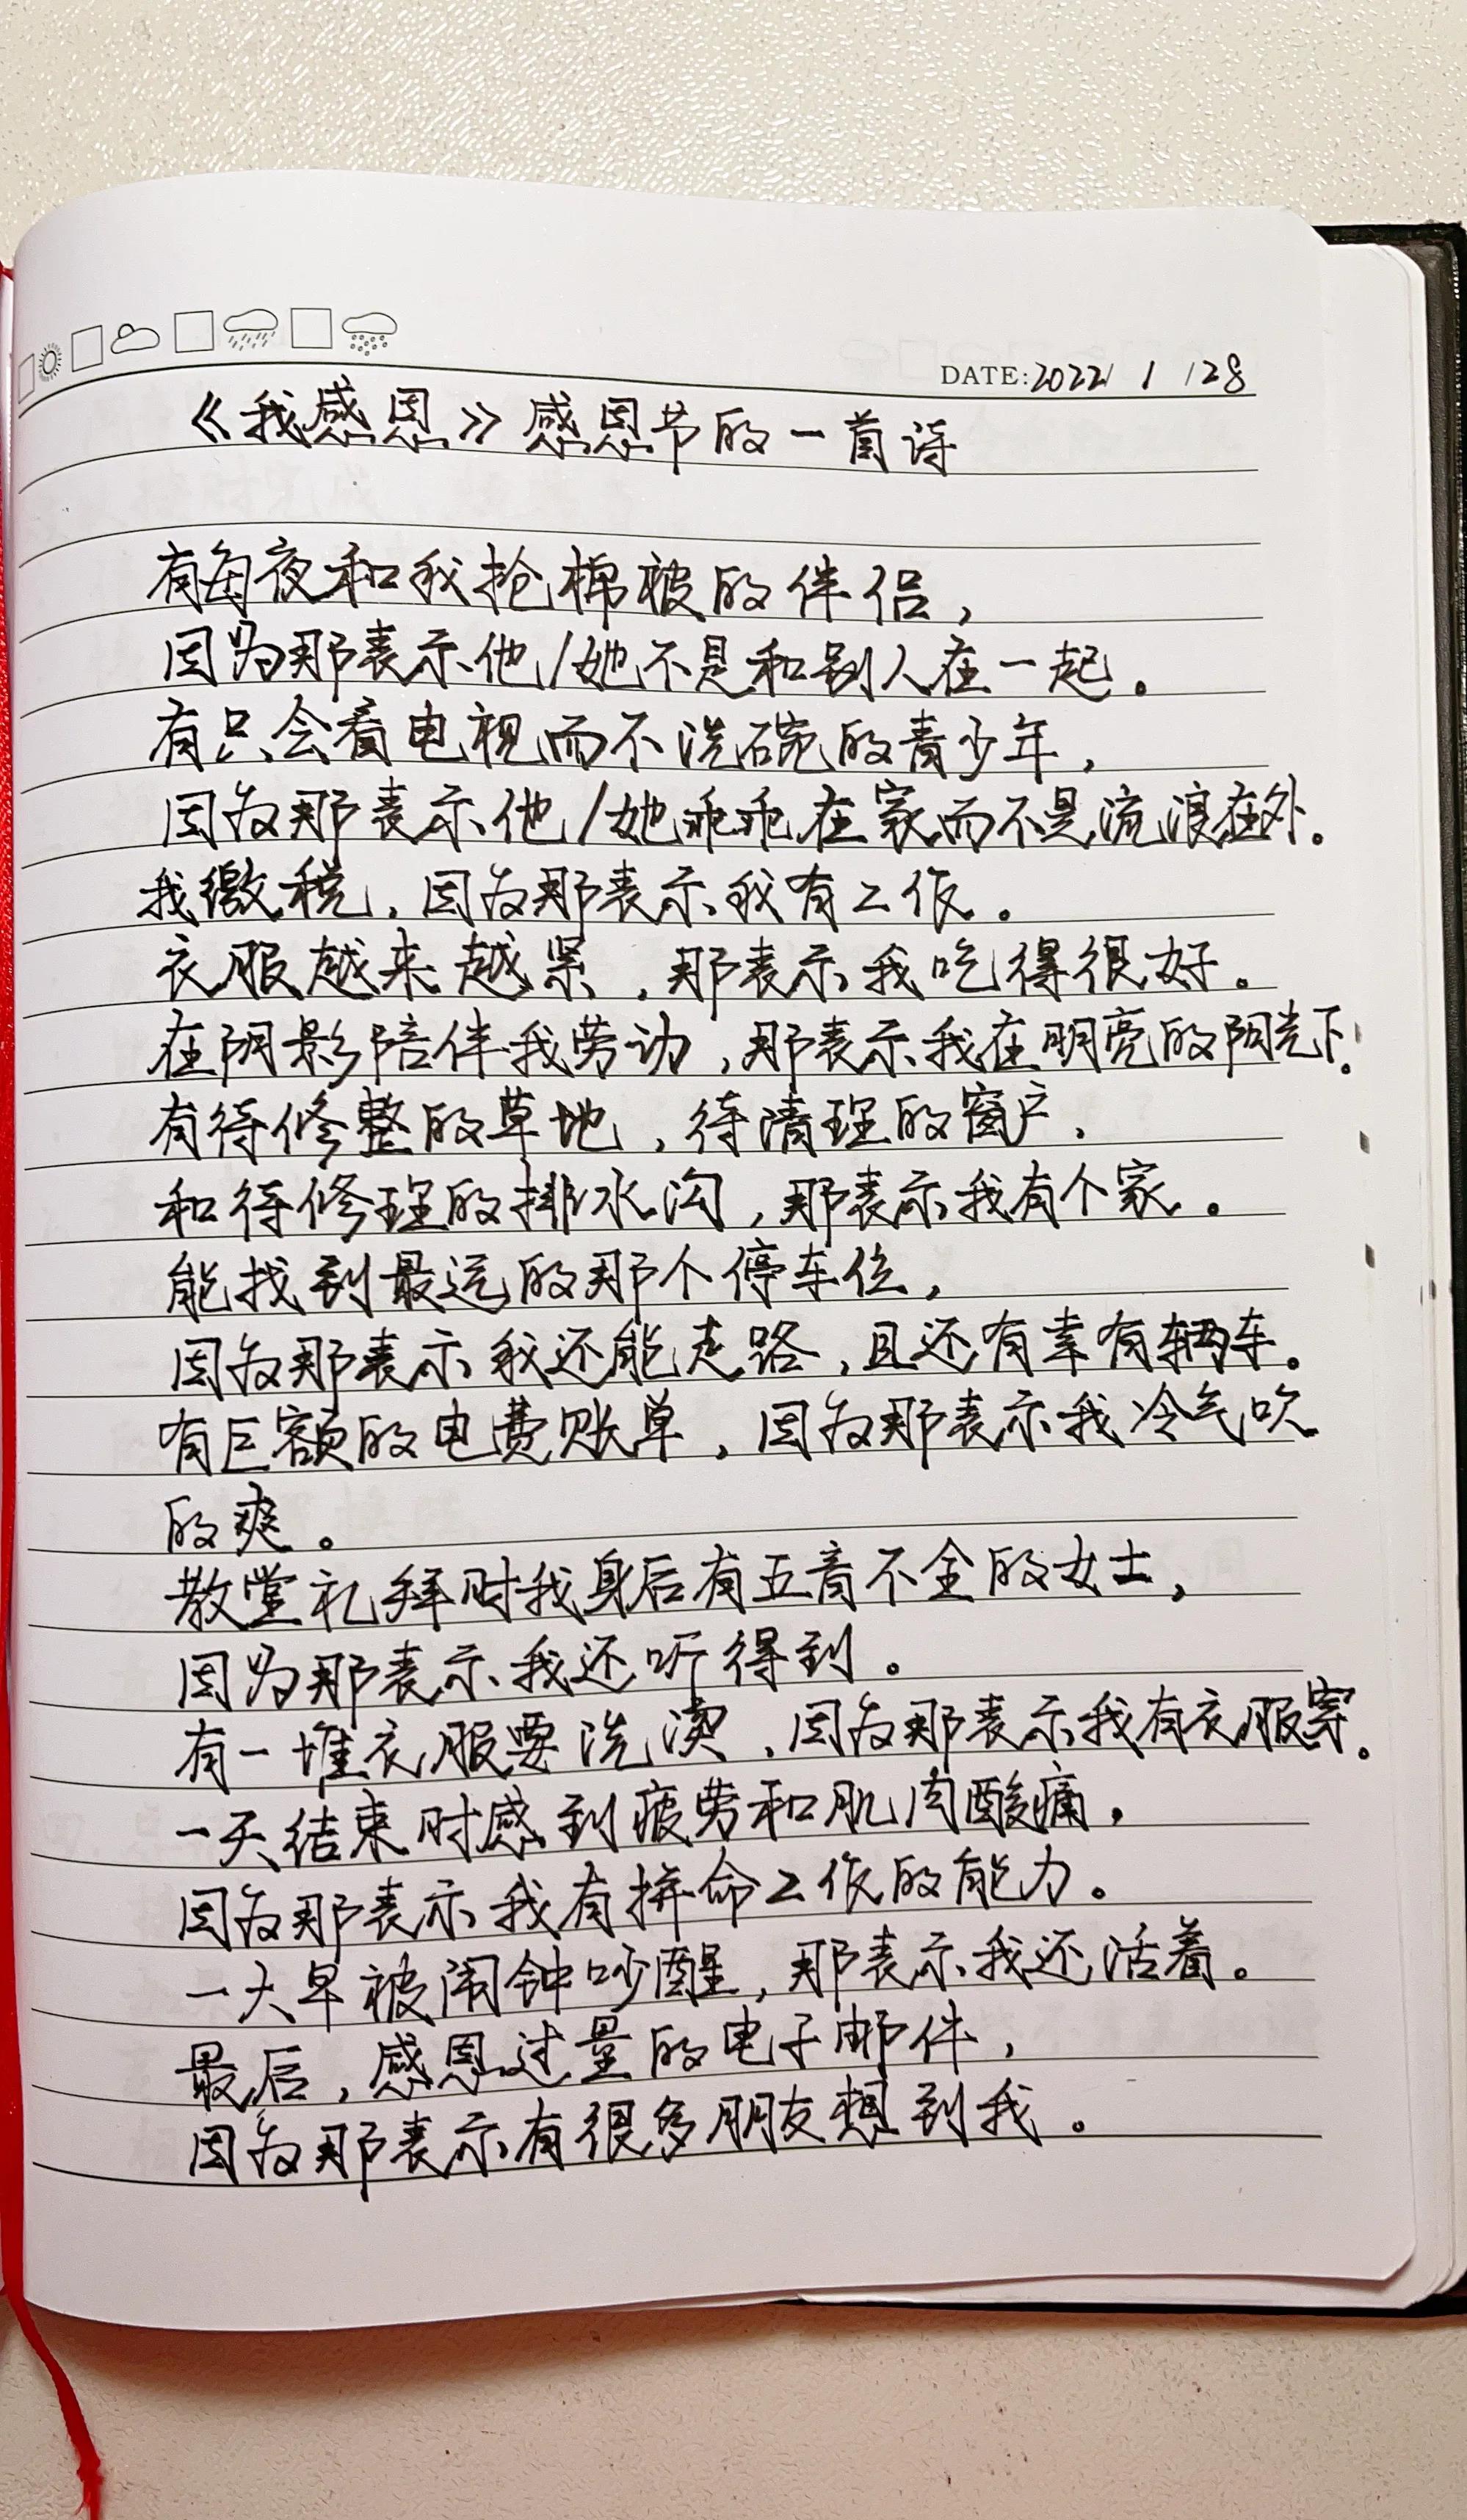 DATE:2022/ 1 /28
《我感恩》感恩节的一首诗
有每夜和我抢棉被的伴侣,
因为那表示他/她不是和别人在一起。
有只会看电视而不洗碗的青少年,
因为那表示他/她乖乖在家而不是流浪在外。
我缴税,因为那表示我有工作。
衣服越来越紧,那表示我吃得很好。
在阴影陪伴我劳动,那表示我在明亮的阳光下。
有待修整的草地,待清理的窗户,
和待修理的排水沟,那表示我有个家。
能找到最远的那个停车位,
因为那表示我还能走路,且还有幸有辆车。
有巨额的电费账单,因为那表示我冷气吹
的爽。
教堂礼拜时我身后有五音不全的女士,
因为那表示我还听得到。
有一堆衣服要洗烫,因为那表示我有衣服穿。
一天结束时感到疲劳和肌肉酸痛,
因为那表示我有拼命工作的能力。
一大早被闹钟吵醒,那表示我还活着。
最后,感恩过量的电子邮件,
因为那表示有很多朋友想到我。